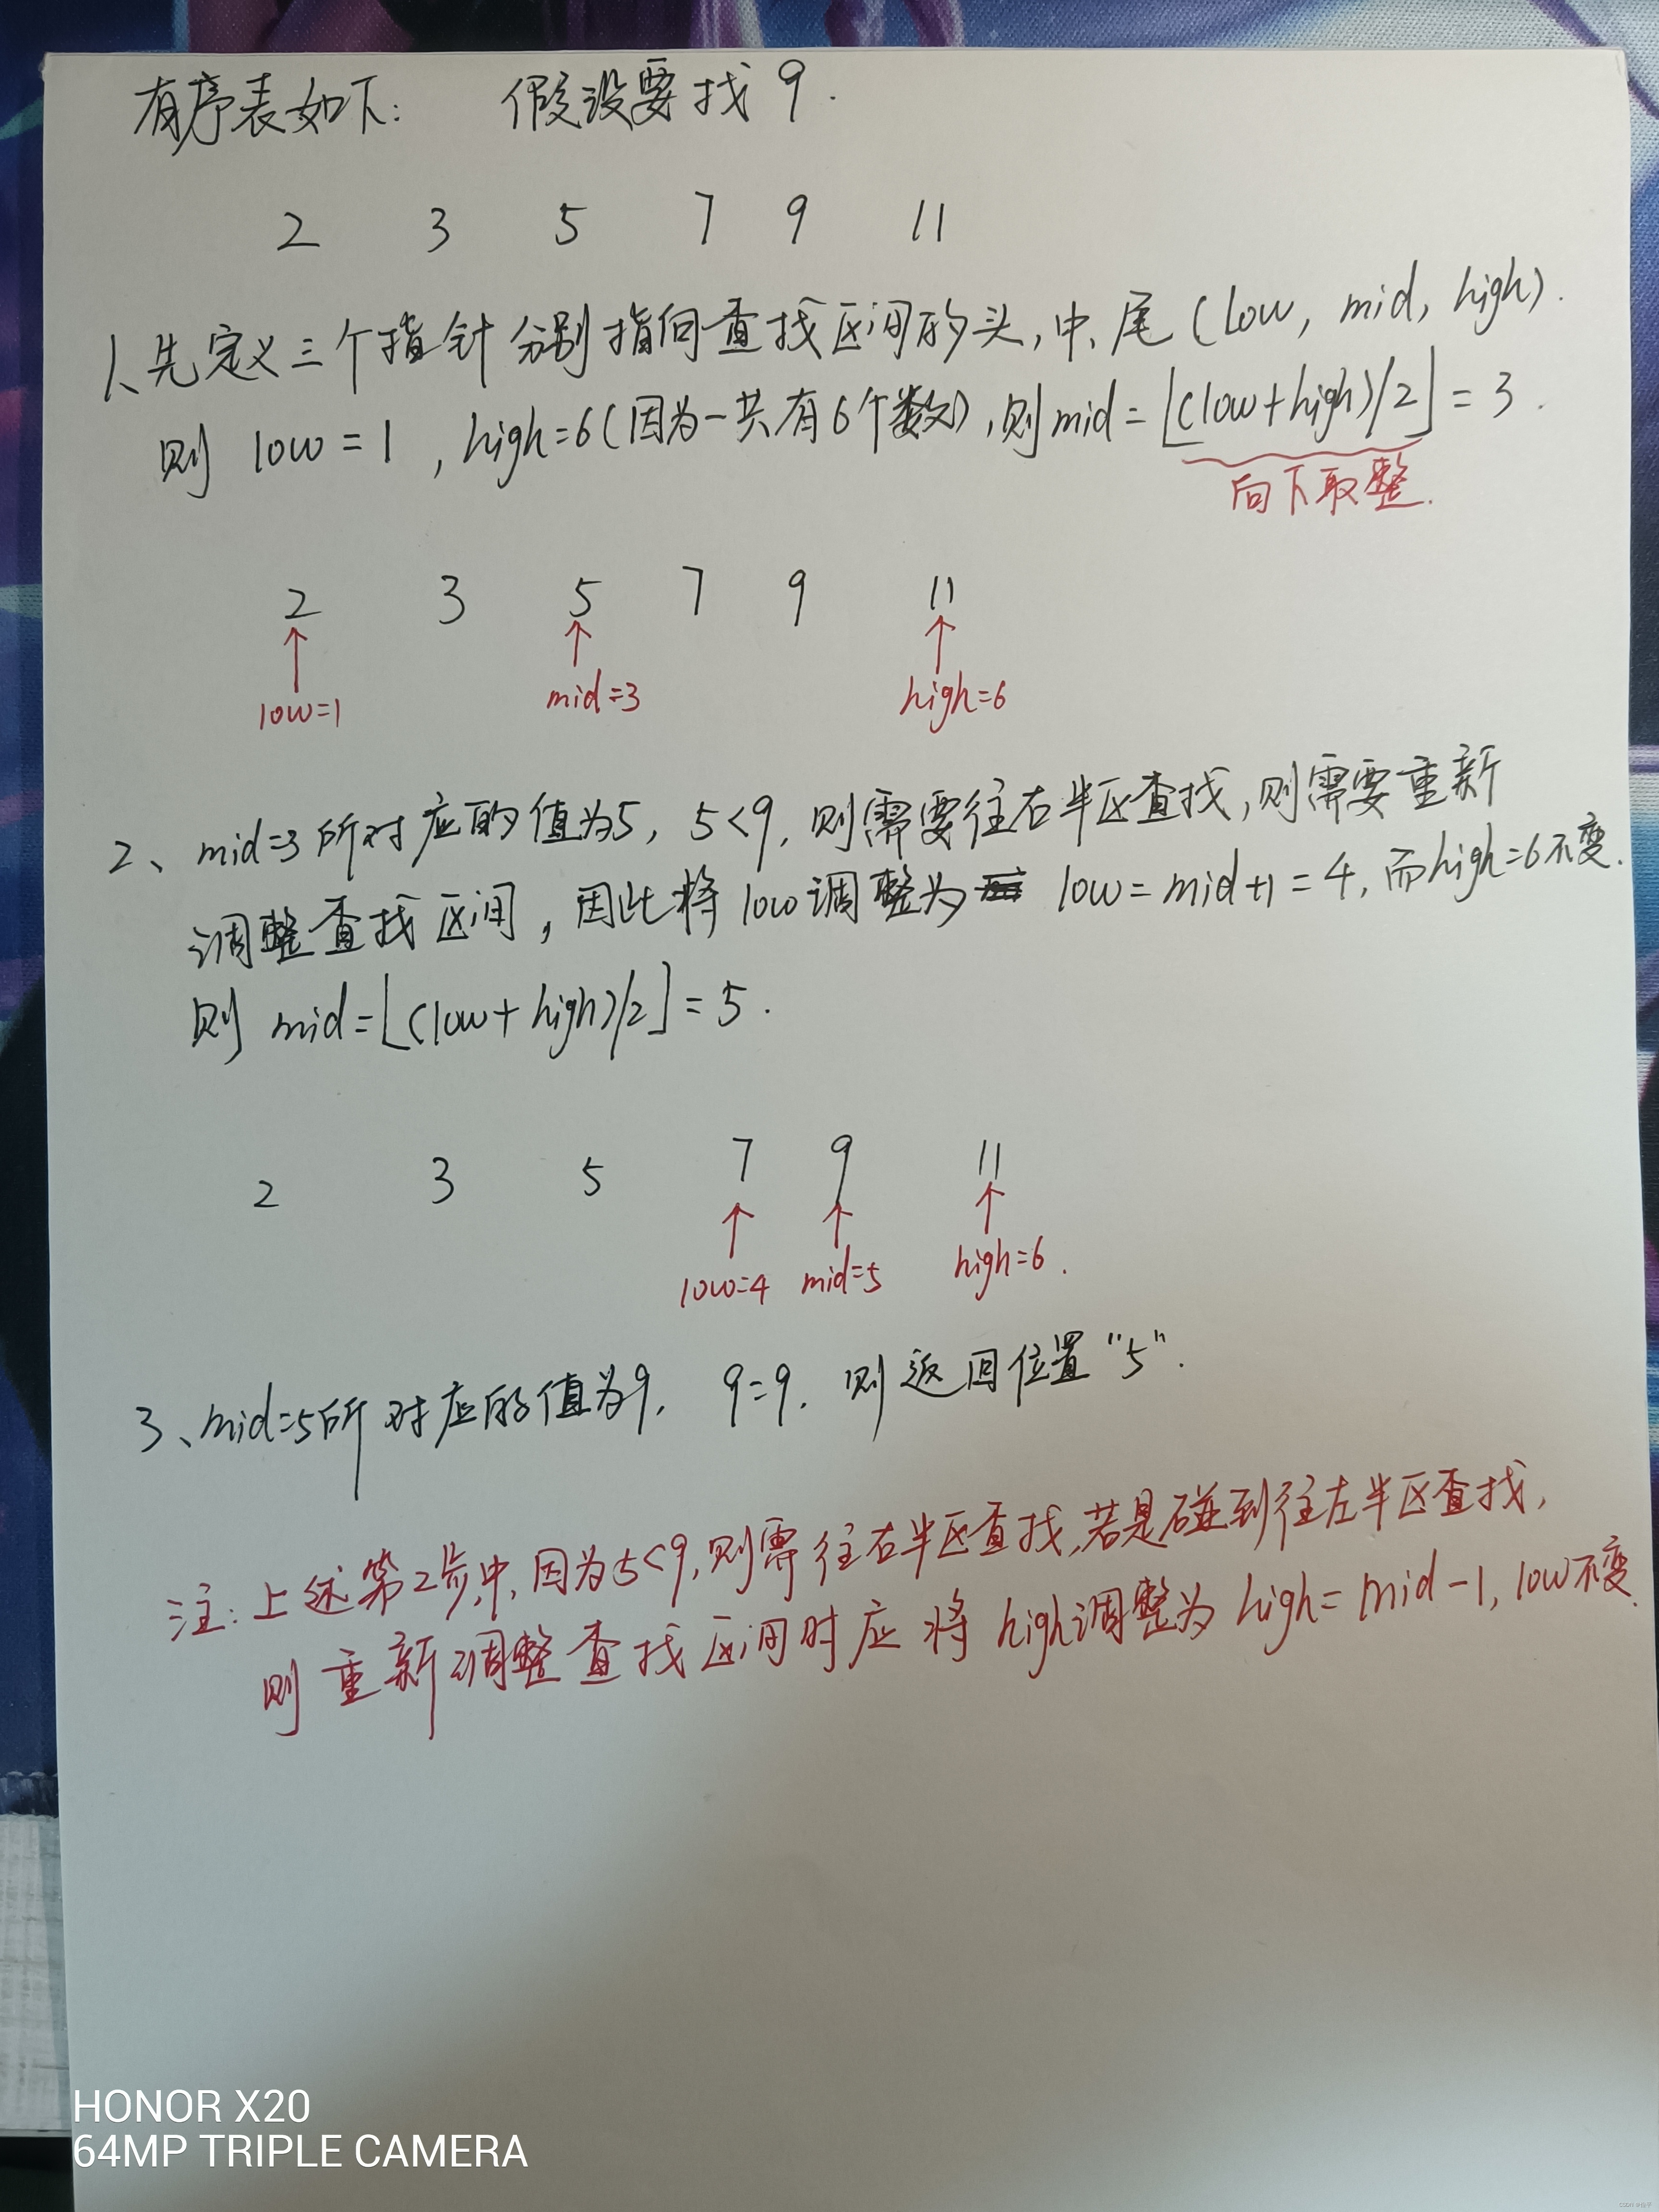 有序表如下: 假设要找9.
2 3 5 7 9 11
1、先定义三个指针分别指向查找区间的头,中、尾(low, mid, high).
则 low=1, high=6(因为一共有6个数),则mid=⌊(low+high)/2⌋=3.
向下取整.
2 3 5 7 9 11
low=1 mid=3 high=6
2、mid=3所对应的值为5, 5<9, 则需要往右半区查找,则需要重新
调整查找区间,因此将low调整为 low=mid+1=4, 而high=6不变.
则 mid=⌊(low+high)/2⌋=5.
2 3 5 7 9 11
low=4 mid=5 high=6.
3、mid=5所对应的值为9, 9=9, 则返回位置"5".
注: 上述第2步中,因为5<9,则需往右半区查找,若是碰到往左半区查找,
则重新调整查找区间时应将high调整为high=mid-1, low不变.
HONOR X20
64MP TRIPLE CAMERA